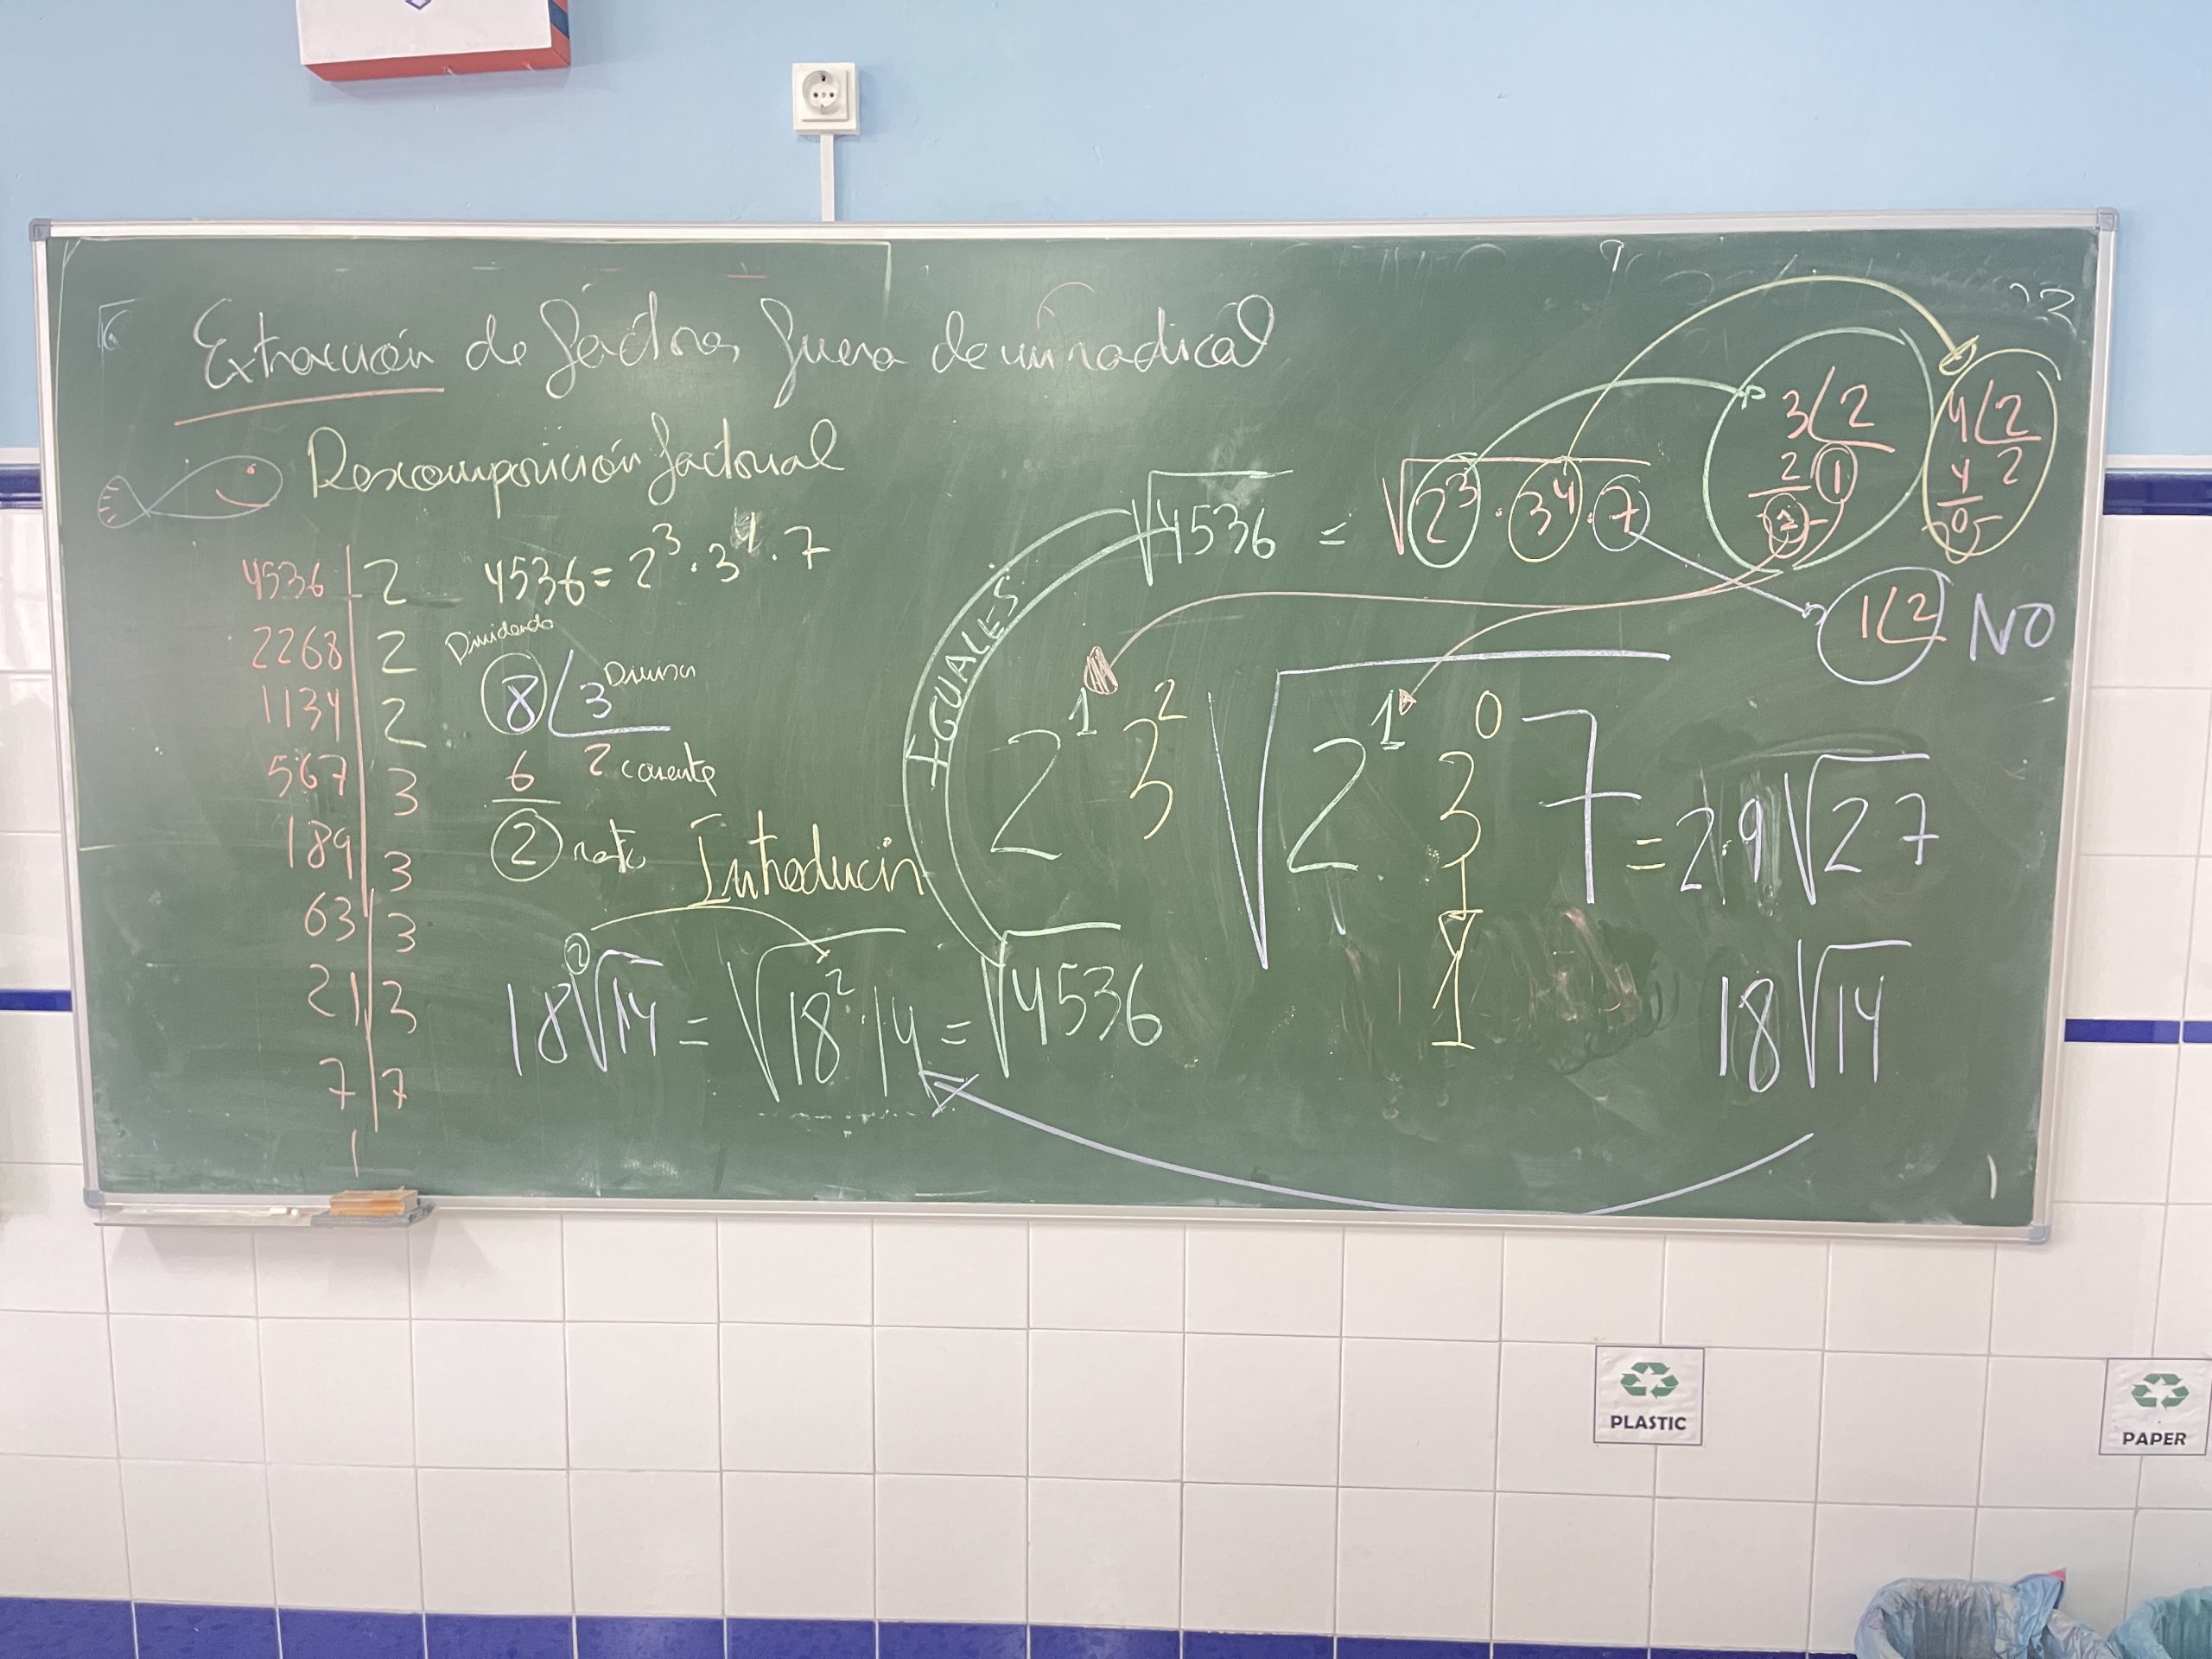 Extracción de factores fuera de un radical
Descomposición factorial
4536 | 2
2268 | 2
1134 | 2
567 | 3
189 | 3
63 | 3
21 | 3
7 | 7
1
4536 = 2³ · 3⁴ · 7
Dividendo
8 3 Divisor
6 2 cociente
2 resto
Introducir
18 ²√14 = √18² · 14 = √4536
IGUALES
√4536 = √2³ · 3⁴ · 7
3 2
2 1
1
4 2
4 2
0
1 2 NO
2¹ 3² √2¹ 3⁰ 7 = 2·9√2 7
1
18√14
PLASTIC
PAPER